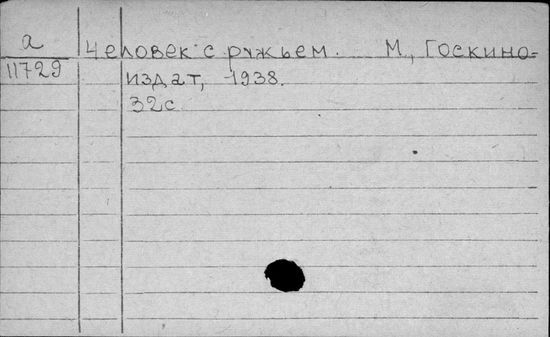 а
11729
Человек с ружьем. М., Госкино-
издат, 1938.
32с.